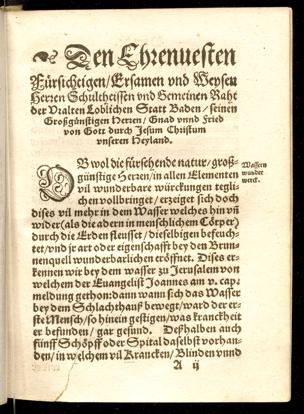 Den Ehrenuesten
Fürsichtigen/Ersamen vnd Weysen
Herren Schultheissen vnd Gemeinen Raht
der Vralten Loblichen Statt Baden/seinen
Großgünstigen Herren/Gnad vnnd Fried
von Gott durch Jesum Christum
vnseren Heyland.
OB wol die fürsehende natur/groß-
günstige Herren/in allen Elementen
vil wunderbare würckungen tegli-
chen vollbringet/erzeiget sich doch
dises vil mehr in dem Wasser welches hin vñ
wider(als die adern in menschlichem Cörper)
durch die Erden fleusset/dieselbigen befeuch-
tet/vnd jr art oder eigenschafft bey den Brun-
nenquell wunderbarlichen eröffnet. Dises er-
kennen wir bey dem wasser zu Jerusalem von
welchem der Euangelist Joannes am v. cap:
meldung gethon:dann wann sich das Wasser
bey dem Schlachthauß bewegt/ward der er-
ste Mensch/so hinein gestigen/was kranckheit
er befunden/gar gesund. Deßhalben auch
fünff Schöpff oder Spital daselbst vorhan-
den/in welchem vil Krancken/Blinden vnnd
A ij
Wassern
wunder
werck.